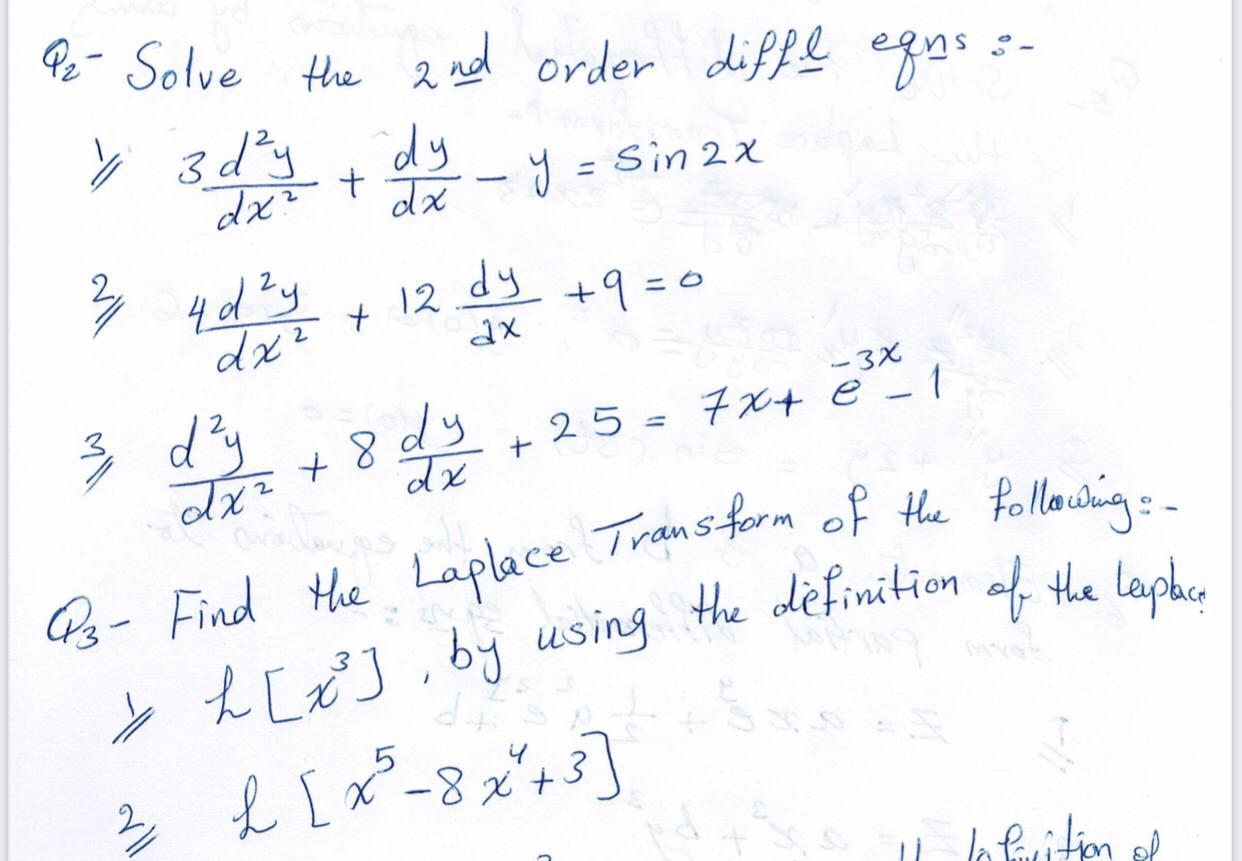 Q2- Solve the 2nd order diffl eqns :-
1 3d²y/dx² + dy/dx - y = sin 2x
2 4d²y/dx² + 12 dy/dx + 9 = 0
3 d²y/dx² + 8 dy/dx + 25 = 7x + e^-3x - 1
Q3- Find the Laplace Transform of the following :-
1 L[x³], by using the definition of the Leplace
2 L[x⁵ - 8x⁴ + 3]
of